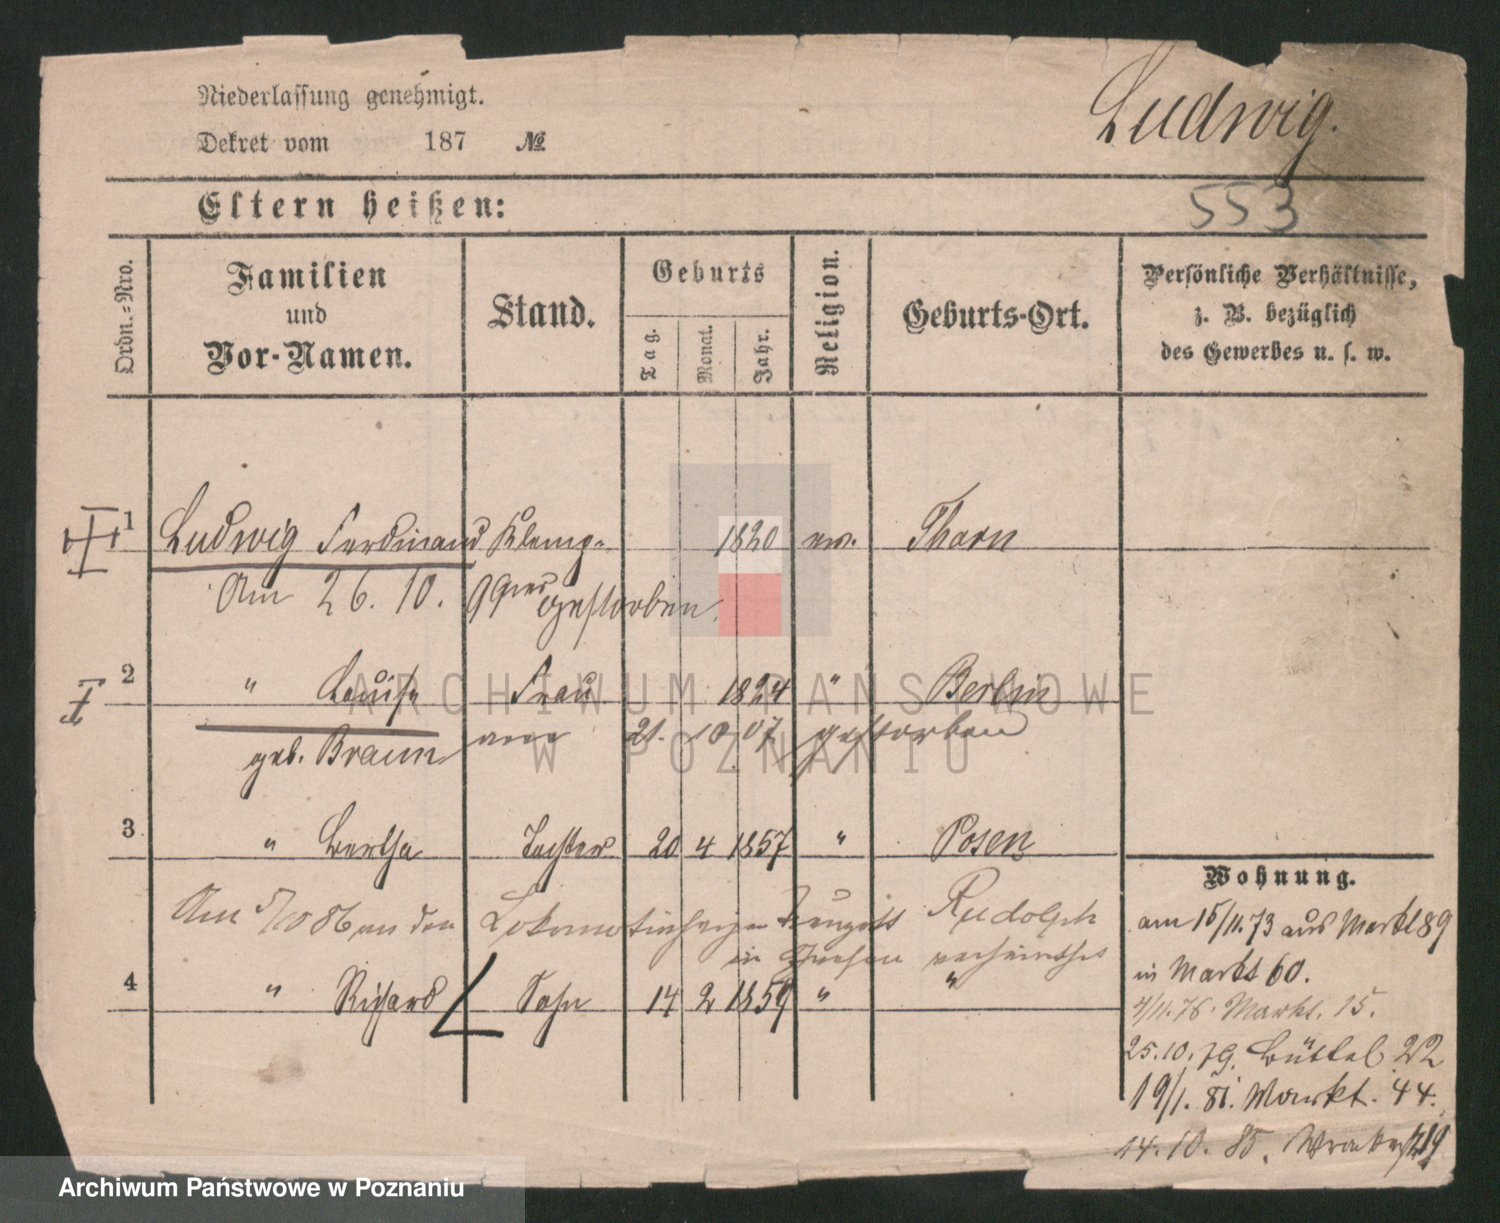 Niederlassung genehmigt.
Dekret vom 187 №
Ludwig.
553
Eltern heißen:
Ordn.=Nro.
Familien und Vor-Namen.
Stand.
Geburts
Tag.
Monat.
Jahr.
Religion.
Geburts-Ort.
Persönliche Verhältnisse,
z. B. bezüglich
des Gewerbes u. s. w.
1 Ludwig Ferdinand Klemp. 1820 ev. Thorn
Am 26. 10. gestorben.
2 " Louise Frau 1824 " Berlin
geb. Braun am 21. 10 07 gestorben
3 " Bertha Tochter 20 4 1857 " Posen
Am 5/10 86 an den Rudolph
in verheirathet
4 " Richard Sohn 14 2 1859 " "
Wohnung.
am 15/11. 73 aus Markt 89
in Markt 60.
4/11. 76. Markt. 15.
25. 10. 79. Büttel 22
19/1. 81. Markt. 44.
14. 10. 85.
ARCHIWUM PAŃSTWOWE
W POZNANIU
Archiwum Państwowe w Poznaniu